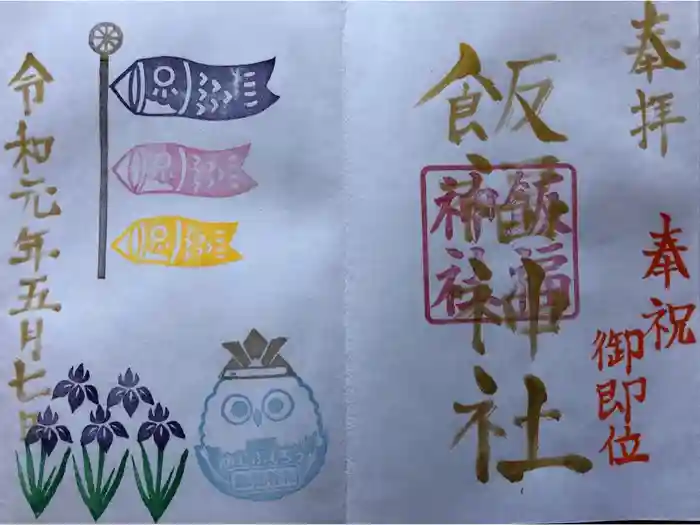 奉拝
奉祝
御即位
飯福神社
飯福
神社
令和元年五月七日